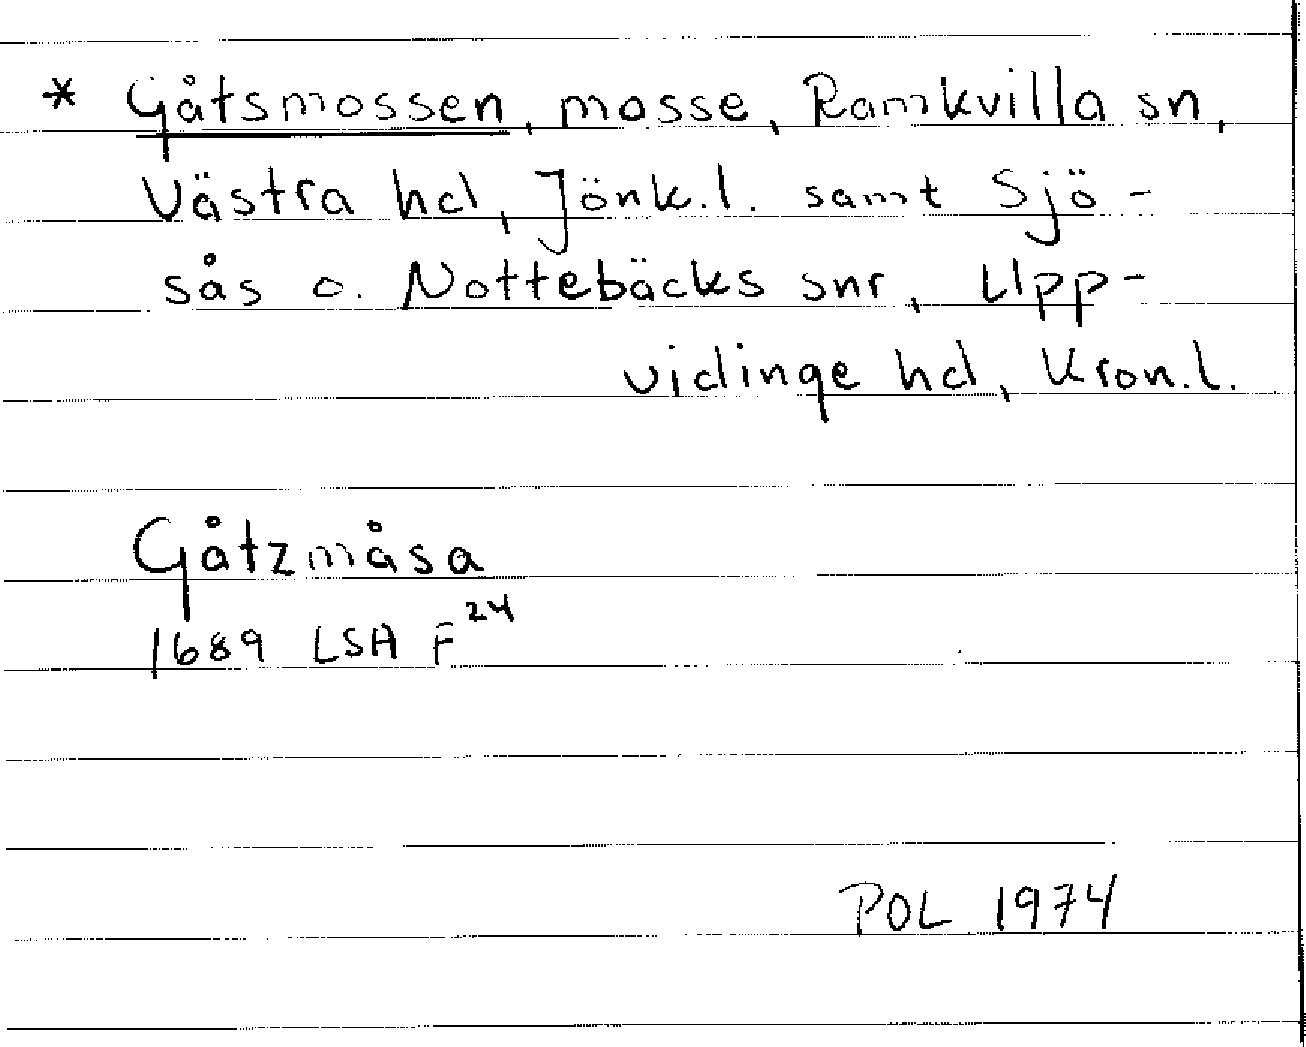 * Gåtsmossen, mosse, Ramkvilla sn,
Västra hd, Jönk.l. samt Sjö-
sås o. Nottebäcks snr, Upp-
vidinge hd, Kron.l.
Gåtzmåsa
1689 LSA F24
POL 1974